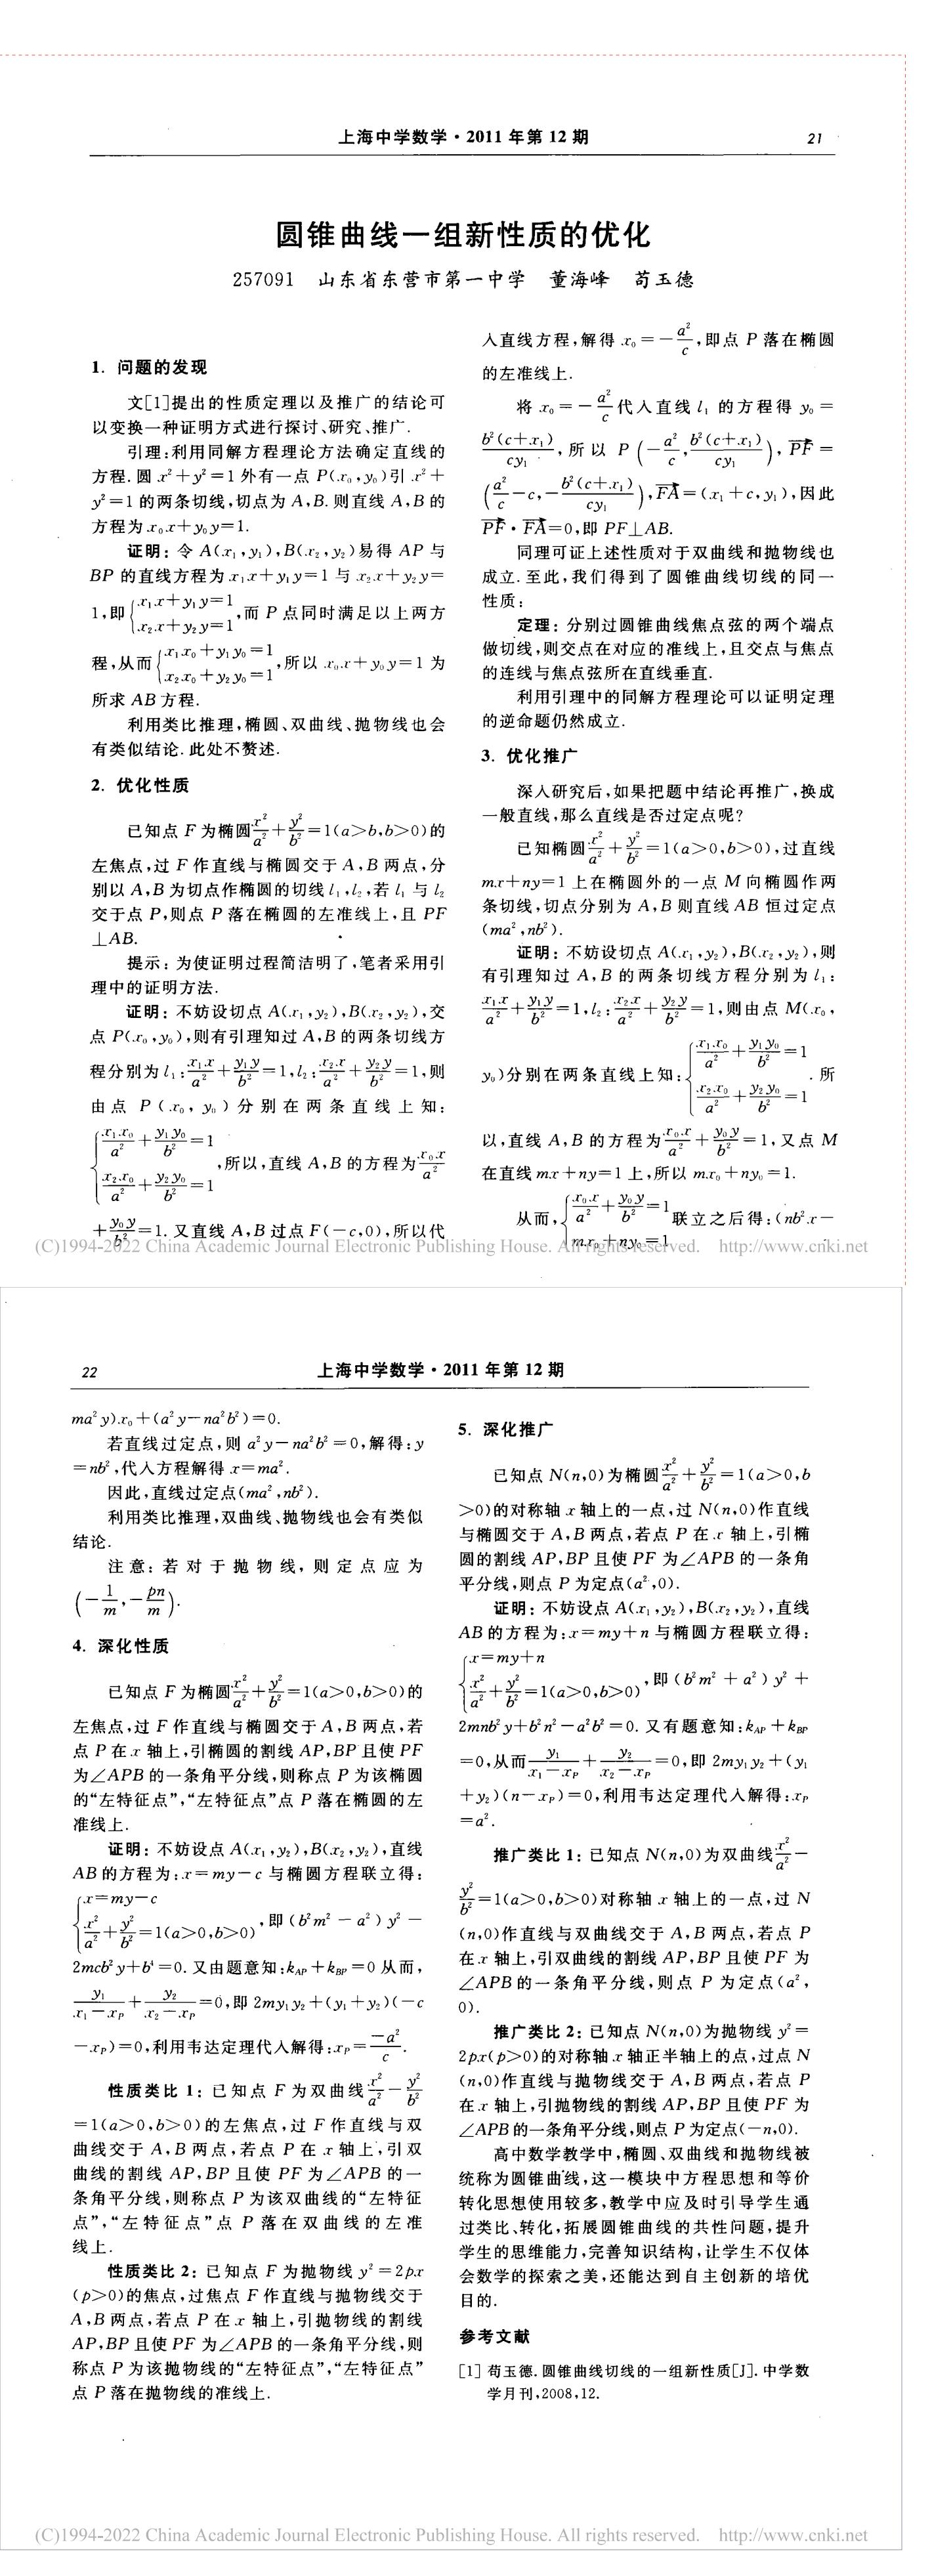 上海中学数学·2011年第12期 21
圆锥曲线一组新性质的优化
257091 山东省东营市第一中学 董海峰 苟玉德
1. 问题的发现
文[1]提出的性质定理以及推广的结论可
以变换一种证明方式进行探讨、研究、推广.
引理:利用同解方程理论方法确定直线的
方程.圆 x²+y²=1外有一点 P(x₀,y₀)引 x²+
y²=1的两条切线,切点为 A,B.则直线 A,B的
方程为x₀x+y₀y=1.
证明:令 A(x₁,y₁),B(x₂,y₂)易得 AP 与
BP 的直线方程为 x₁x+y₁y=1 与 x₂x+y₂y=
1,即{x₁x+y₁y=1 x₂x+y₂y=1,而 P 点同时满足以上两方
程,从而{x₁x₀+y₁y₀=1 x₂x₀+y₂y₀=1,所以 x₀x+y₀y=1 为
所求 AB 方程.
利用类比推理,椭圆、双曲线、抛物线也会
有类似结论.此处不赘述.
2. 优化性质
已知点 F 为椭圆x²/a²+y²/b²=1(a>b,b>0)的
左焦点,过 F 作直线与椭圆交于 A,B 两点,分
别以 A,B 为切点作椭圆的切线 l₁,l₂,若 l₁ 与 l₂
交于点 P,则点 P 落在椭圆的左准线上,且 PF
⊥AB.
提示:为使证明过程简洁明了,笔者采用引
理中的证明方法.
证明:不妨设切点 A(x₁,y₂),B(x₂,y₂),交
点 P(x₀,y₀),则有引理知过 A,B 的两条切线方
程分别为 l₁:x₁x/a²+y₁y/b²=1,l₂:x₂x/a²+y₂y/b²=1,则
由点 P(x₀,y₀)分别在两条直线上知:
{x₁x₀/a²+y₁y₀/b²=1 x₂x₀/a²+y₂y₀/b²=1,所以,直线 A,B 的方程为x₀x/a²
+y₀y/b²=1.又直线 A,B 过点 F(-c,0),所以代
入直线方程,解得 x₀=-a²/c,即点 P 落在椭圆
的左准线上.
将 x₀=-a²/c代入直线 l₁ 的方程得 y₀=
b²(c+x₁)/cy₁,所以 P(-a²/c,b²(c+x₁)/cy₁),PF→=
(a²/c-c,-b²(c+x₁)/cy₁),FA→=(x₁+c,y₁),因此
PF→·FA→=0,即 PF⊥AB.
同理可证上述性质对于双曲线和抛物线也
成立.至此,我们得到了圆锥曲线切线的同一
性质:
定理:分别过圆锥曲线焦点弦的两个端点
做切线,则交点在对应的准线上,且交点与焦点
的连线与焦点弦所在直线垂直.
利用引理中的同解方程理论可以证明定理
的逆命题仍然成立.
3. 优化推广
深入研究后,如果把题中结论再推广,换成
一般直线,那么直线是否过定点呢?
已知椭圆x²/a²+y²/b²=1(a>0,b>0),过直线
mx+ny=1 上在椭圆外的一点 M 向椭圆作两
条切线,切点分别为 A,B 则直线 AB 恒过定点
(ma²,nb²).
证明:不妨设切点 A(x₁,y₂),B(x₂,y₂),则
有引理知过 A,B 的两条切线方程分别为 l₁:
x₁x/a²+y₁y/b²=1,l₂:x₂x/a²+y₂y/b²=1,则由点 M(x₀,
y₀)分别在两条直线上知:{x₁x₀/a²+y₁y₀/b²=1 x₂x₀/a²+y₂y₀/b²=1.所
以,直线 A,B 的方程为x₀x/a²+y₀y/b²=1,又点 M
在直线 mx+ny=1 上,所以 mx₀+ny₀=1.
从而,{x₀x/a²+y₀y/b²=1 mx₀+ny₀=1联立之后得:(nb²x-
(C)1994-2022 China Academic Journal Electronic Publishing House. All rights reserved. http://www.cnki.net
22 上海中学数学·2011年第12期
ma²y)x₀+(a²y-na²b²)=0.
若直线过定点,则 a²y-na²b²=0,解得:y
=nb²,代入方程解得 x=ma².
因此,直线过定点(ma²,nb²).
利用类比推理,双曲线、抛物线也会有类似
结论.
注意:若对于抛物线,则定点应为
(-1/m,-pn/m).
4. 深化性质
已知点 F 为椭圆x²/a²+y²/b²=1(a>0,b>0)的
左焦点,过 F 作直线与椭圆交于 A,B 两点,若
点 P 在 x 轴上,引椭圆的割线 AP,BP 且使 PF
为∠APB 的一条角平分线,则称点 P 为该椭圆
的“左特征点”,“左特征点”点 P 落在椭圆的左
准线上.
证明:不妨设点 A(x₁,y₂),B(x₂,y₂),直线
AB 的方程为:x=my-c 与椭圆方程联立得:
{x=my-c x²/a²+y²/b²=1(a>0,b>0),即(b²m²-a²)y²-
2mcb²y+b⁴=0.又由题意知:kAP+kBP=0 从而,
y₁/(x₁-xP)+y₂/(x₂-xP)=0,即 2my₁y₂+(y₁+y₂)(-c
-xP)=0,利用韦达定理代入解得:xP=-a²/c.
性质类比 1:已知点 F 为双曲线x²/a²-y²/b²
=1(a>0,b>0)的左焦点,过 F 作直线与双
曲线交于 A,B 两点,若点 P 在 x 轴上,引双
曲线的割线 AP,BP 且使 PF 为∠APB 的一
条角平分线,则称点 P 为该双曲线的“左特征
点”,“左特征点”点 P 落在双曲线的左准
线上.
性质类比 2:已知点 F 为抛物线 y²=2px
(p>0)的焦点,过焦点 F 作直线与抛物线交于
A,B 两点,若点 P 在 x 轴上,引抛物线的割线
AP,BP 且使 PF 为∠APB 的一条角平分线,则
称点 P 为该抛物线的“左特征点”,“左特征点”
点 P 落在抛物线的准线上.
5. 深化推广
已知点 N(n,0)为椭圆x²/a²+y²/b²=1(a>0,b
>0)的对称轴 x 轴上的一点,过 N(n,0)作直线
与椭圆交于 A,B 两点,若点 P 在 x 轴上,引椭
圆的割线 AP,BP 且使 PF 为∠APB 的一条角
平分线,则点 P 为定点(a²,0).
证明:不妨设点 A(x₁,y₂),B(x₂,y₂),直线
AB 的方程为:x=my+n 与椭圆方程联立得:
{x=my+n x²/a²+y²/b²=1(a>0,b>0),即(b²m²+a²)y²+
2mnb²y+b²n²-a²b²=0.又有题意知:kAP+kBP
=0,从而y₁/(x₁-xP)+y₂/(x₂-xP)=0,即 2my₁y₂+(y₁
+y₂)(n-xP)=0,利用韦达定理代入解得:xP
=a².
推广类比 1:已知点 N(n,0)为双曲线x²/a²-
y²/b²=1(a>0,b>0)对称轴 x 轴上的一点,过 N
(n,0)作直线与双曲线交于 A,B 两点,若点 P
在 x 轴上,引双曲线的割线 AP,BP 且使 PF 为
∠APB 的一条角平分线,则点 P 为定点(a²,
0).
推广类比 2:已知点 N(n,0)为抛物线 y²=
2px(p>0)的对称轴 x 轴正半轴上的点,过点 N
(n,0)作直线与抛物线交于 A,B 两点,若点 P
在 x 轴上,引抛物线的割线 AP,BP 且使 PF 为
∠APB的一条角平分线,则点 P 为定点(-n,0).
高中数学教学中,椭圆、双曲线和抛物线被
统称为圆锥曲线,这一模块中方程思想和等价
转化思想使用较多,教学中应及时引导学生通
过类比、转化,拓展圆锥曲线的共性问题,提升
学生的思维能力,完善知识结构,让学生不仅体
会数学的探索之美,还能达到自主创新的培优
目的.
参考文献
[1] 苟玉德.圆锥曲线切线的一组新性质[J].中学数
学月刊,2008,12.
(C)1994-2022 China Academic Journal Electronic Publishing House. All rights reserved. http://www.cnki.net